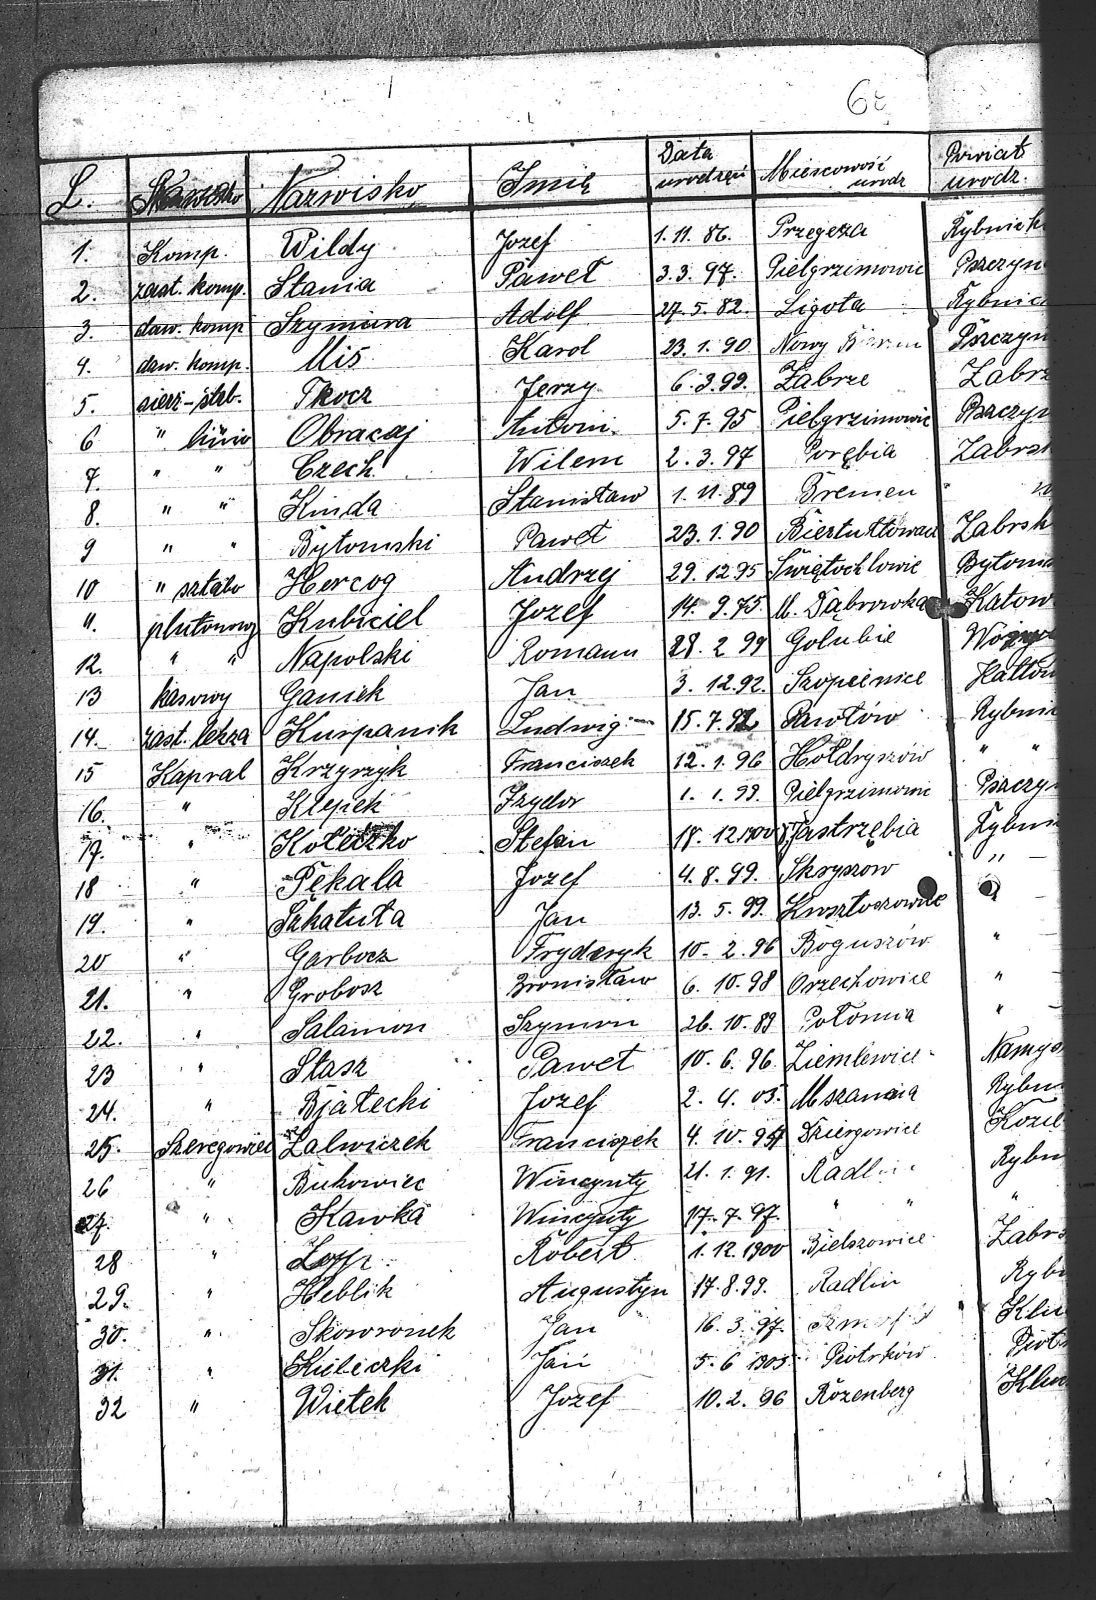 6
L. Nazwisko Imię Data urodzeń Miejscowość urodz Powiat urodz.
1. Komp. Wildy Jozef 1.11.86. Przegęza Rybnick
2. zast. komp. Stania Paweł 3.3.97. Pielgrzimowic Pszczyn
3. daw. komp Szymura Adolf 27.5.82. Ligota Rybnic
4. daw. komp. Miś Karol 23.1.90 Nowy Pszczyn
5. sierż-sztb. Tkocz Jerzy 6.3.99. Zabrze Zabrz
6 " Obracaj Antoni 5.7.95 Pielgrzimowic Pszczyn
7. " " Czech Wilem 2.3.97 Porębia Zabrsk
8. " " Kinda Stanisław 1.11.89 Bremen "
9 " " Bytomski Paweł 23.1.90 Zabrsk
10 " sztabo Hercog Andrzej 29.12.95 Świętochlowic Bytoms
11. plutonowy Kubiciel Jozef 14.9.75. M. Dąbrowka Katow
12. " " Napolski Romann 28.2 99 Golubie
13 kasowy Ganiek Jan 3.12.92. Szopienice Kattow
14. zast. lekza Kurpanik Ludwig 15.7.92 Pawłów Rybnic
15 Kapral Krzyrzyk Franciszek 12.1.96 Hołdryszów " "
16. " Klepek Izydor 1.1.99. Pielgrzimowic Pszczyn
17. " Koleczko Stefan 18.12.1900 Jastrzębia Rybni
18 " Pękala Jozef 4.8.99. Skryszow "
19. " Szkatuła Jan 13.5.99. "
20 " Garbocz Fryderyk 10.2.96 Boguszów "
21. " Grobosz Bronisław 6.10.98 Orzechowice "
22. " Salamon Szymon 26.10.89 Połomia "
23 " Stasz Paweł 10.6.96. Ziemlewice Namys
24. " Bjałecki Jozef 2.4.03. Mszanna Rybn
25. Szeregowiec Zalwiczek Franciszek 4.10.97 Dziergowice Kozie
26 " Bukowiec Wincynty 21.1.91. Radlin Rybn
27. " Kawka Wincynty 17.7.97. " " "
28 " Robert 1.12.1900 Bielszowice Zabrs
29. " Heblik Augustyn 17.8.99. Radlin Rybn
30. " Skowronek Jan 16.3.97. Klu
31. " Kuleczki Jan 5.6 1905 Piotrków Piot
32 " Wietek Jozef 10.2.96 Rozenberg Klu